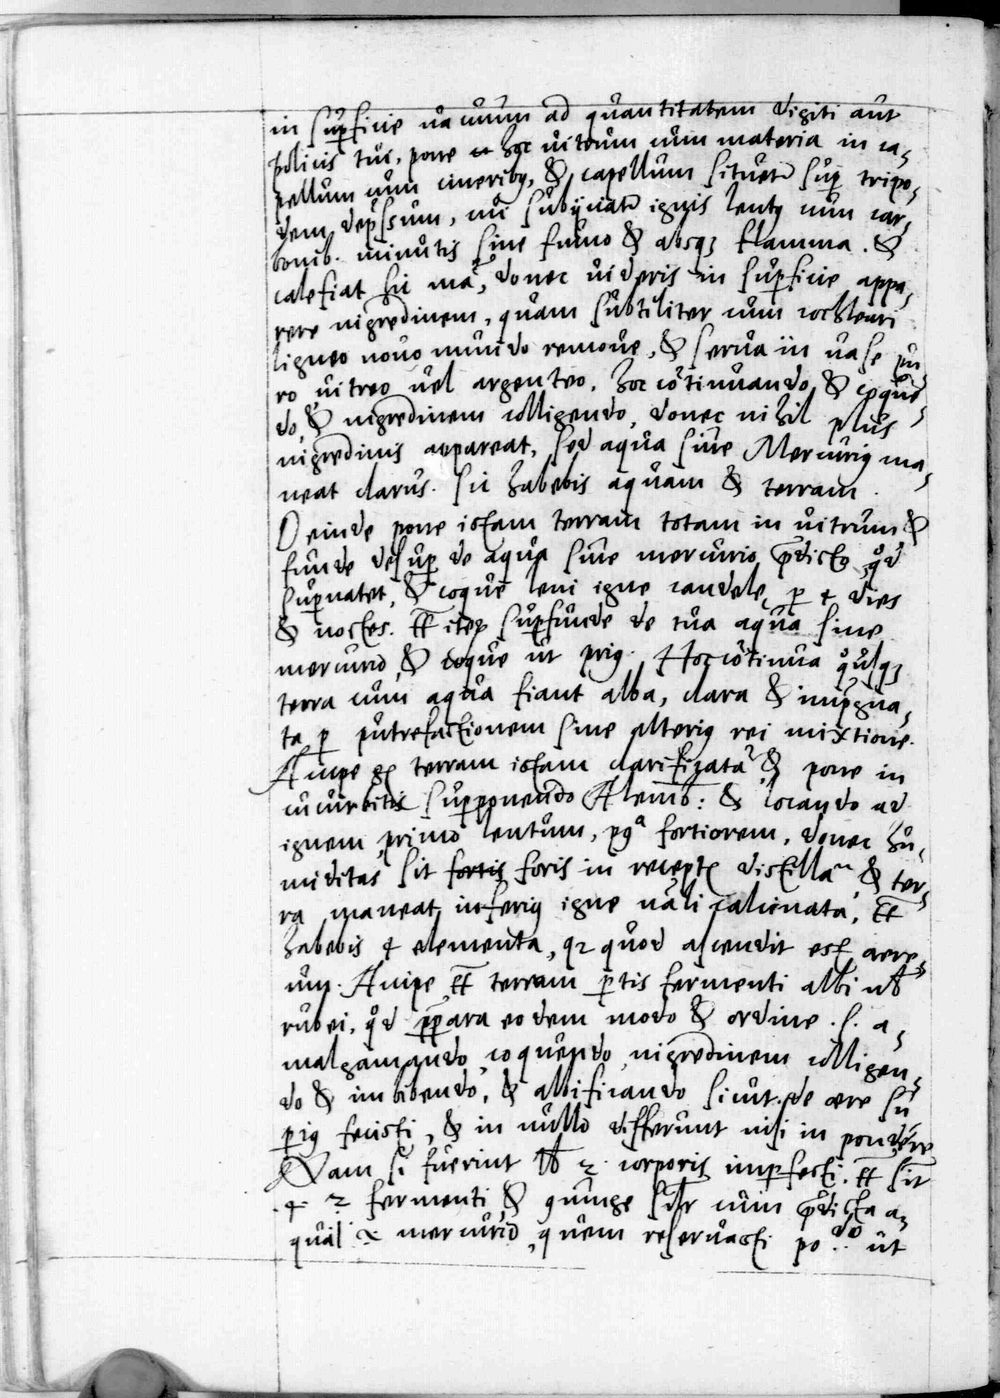 in sup̱ficie vacuum ad quantitatem digiti aut
pollicis tui, pone hoc vitrum cum materia in ca,
pellum cum cineribꝫ, & capellum situet' sup̱ tripo,
dem depressum, cui subijciat' ignis lentꝫ cum car,
bonib. minutis sine fumo & absqꝫ flamma. &
calefiat sic mā, donec videris in sup̱ficie appa,
rere nigredinem, quam subtiliter cum cochleari
ligneo novo mundo remove, & serva in vase pu
ro vitreo vel argenteo, hoc cōtinuando & coquē,
do, & nigredinem colligendo, donec nihil plus
nigredinis appareat, sed aqua sive Mercuriꝫ ma,
neat clarus. Sic habebis aquam & terram.
Deinde pone istam terram totam in vitrum &
funde desup̱ de aqua sive mercurio p̄dicto qd
sup̱natet, & coque leni igne candele p̱ 4 dies
& noctes. itep̱ sup̱funde de tua aqua sive
mercurio & coque ut priꝫ. Hoc cōtinua qusqꝫ
terra cum aqua fiant alba, clara & imp̱gna,
ta p̱ putrefactionem sine alteriꝫ rei mixtione.
Accipe terram istam clarificatā & pone in
cucurbitis sup̱ponendo Alemb: & locando ad
ignem primo lentum, pꝫa fortiorem, donec hu,
miditas sit fortis foris in recept distilla & ter,
ra maneat inferiꝫ igne vali calcinata,
habebis 4 elementa, qꝛ quod ascendit est aere,
um. Accipe terram p̱tis fermenti albi vl
rubei, qd p̱para eodem modo & ordine .s. a,
malgamando, coquendo nigredinem colligen,
do & imbibendo, & albificando sicut de aere su
p̱iꝫ fecisti, & in nullo differunt nisi in pondere
Nam si fuerint corporis imp̱fecti. sit
.4. fermenti, & cum p̄dicta a,
qua mercurio, quem reservasti po ut